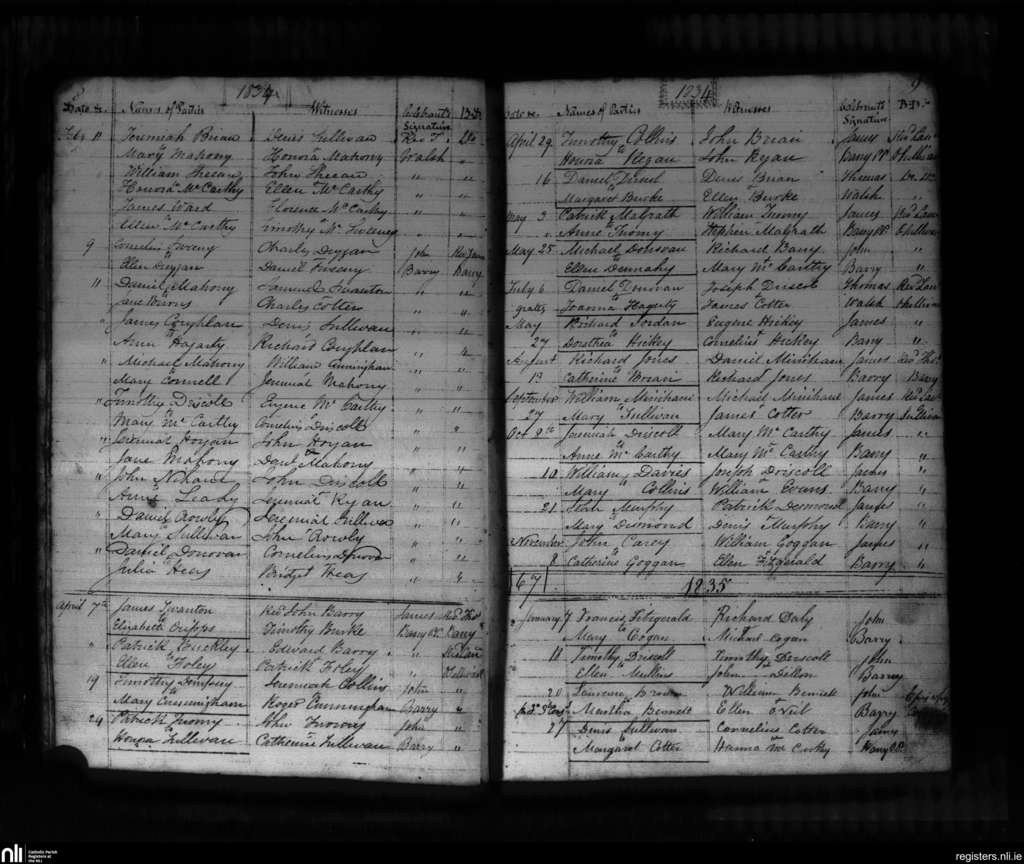 1834
Date &c. Names of Parties Witnesses Celebrant's Signature B.B.
Feby 11 Jeremiah Brian Denis Sullivan Rev T. Do.
Mary Mahony Honora Mahony Walsh "
William Sheean John Sheean " "
Honora McCarthy Ellen McCarthy " "
James Ward Florence McCarthy " "
Ellen McCarthy Timothy McSweeney " "
9 Cornelius Sweeny Charles Duggan John
Ellen Duggan Daniel Sweeny Barry Barry
11 Daniel Mahony Samuel Swanton " "
Jane Burns Charles Cotter " "
" James Coughlan Denis Sullivan " "
Ann Hagarty Richard Coughlan " "
" Michael Mahony William Cunningham " "
Mary Connell Jeremiah Mahony " "
" Timothy Driscoll Eugene McCarthy " "
Mary McCarthy Cornelius Driscoll " "
" Jeremiah Hogan John Hogan " "
Jane Mahony Danl Mahony " "
" John John Driscoll " "
Anne Leady Jeremiah Ryan " "
" Daniel Rowly Jeremiah Sullivan " "
Mary Sullivan John Rowly " "
" Daniel Donovan Cornelius Donovan " "
Julia Heas Bridget Heas " "
April 7th James Swanton Rev John Barry James Revd Thos
Elizabeth Cripps Timothy Burke Barry PP. Barry
" Patrick Buckley Edward Barry "
Ellen Foley Patrick Foley "
19 Timothy Dempsey Jeremiah Collins John "
Mary Cunningham Roger Cunningham Barry "
24 Patrick Twomy John Twomy John "
Honora Sullivan Catherine Sullivan Barry "
1834 9
Date &c. Names of Parties Witnesses Celebrant's Signature B.B.
April 29 Timothy Collins John Brian James Revd Lau
Honora Regan John Ryan Barry PP OSullivan
16 Daniel Driscol Denis Brian Thomas Do. Do.
Margaret Burke Ellen Burke Walsh "
May 3 Patrick Magrath William Twomy James Revd Lau
Anne Twomy Stephen Magrath Barry PP. OSullivan
May 25 Michael Donovan Richard Barry John "
Ellen Dennahy Mary McCarthy Barry "
July 6 Daniel Donovan Joseph Driscol Thomas Revd Lau
gratis Joanna Hagerty James Cotter Walsh OSullivan
May Richard Jordan Eugene Hickey James "
27 Dorothea Hickey Cornelius Hickey Barry "
August Richard Jones Daniel Minihane James Revd Thos
13 Catherine Brian Richard Jones Barry Barry
September William Minihane Michael Minihane James Revd Lau
27 Mary Sullivan James Cotter Barry Sullivan
Oct 9th Jeremiah Driscoll Mary McCarthy James "
Anne McCarthy Mary McCarthy Barry "
10 William Davies Joseph Driscoll James "
Mary Collins William Evans Barry "
21 John Murphy Patrick Desmond James "
Mary Desmond Denis Murphy Barry "
November John Carey William Goggan James "
8 Catherine Goggan Ellen Fitzgerald Barry "
67 1835
January 7 Francis Fitzgerald Richard Daly John
Mary Cogan Michael Cogan Barry
18 Timothy Driscoll Timothy Driscoll John
Ellen Mullins John Dillon Barry
20 Laurence Brown William Bennett John
Martha Bennett Ellen ONeil Barry
27 Denis Sullivan Cornelius Cotter James
Margaret Cotter Hanna McCarthy Barry P.P.
nli Catholic Parish Registers at the NLI
registers.nli.ie